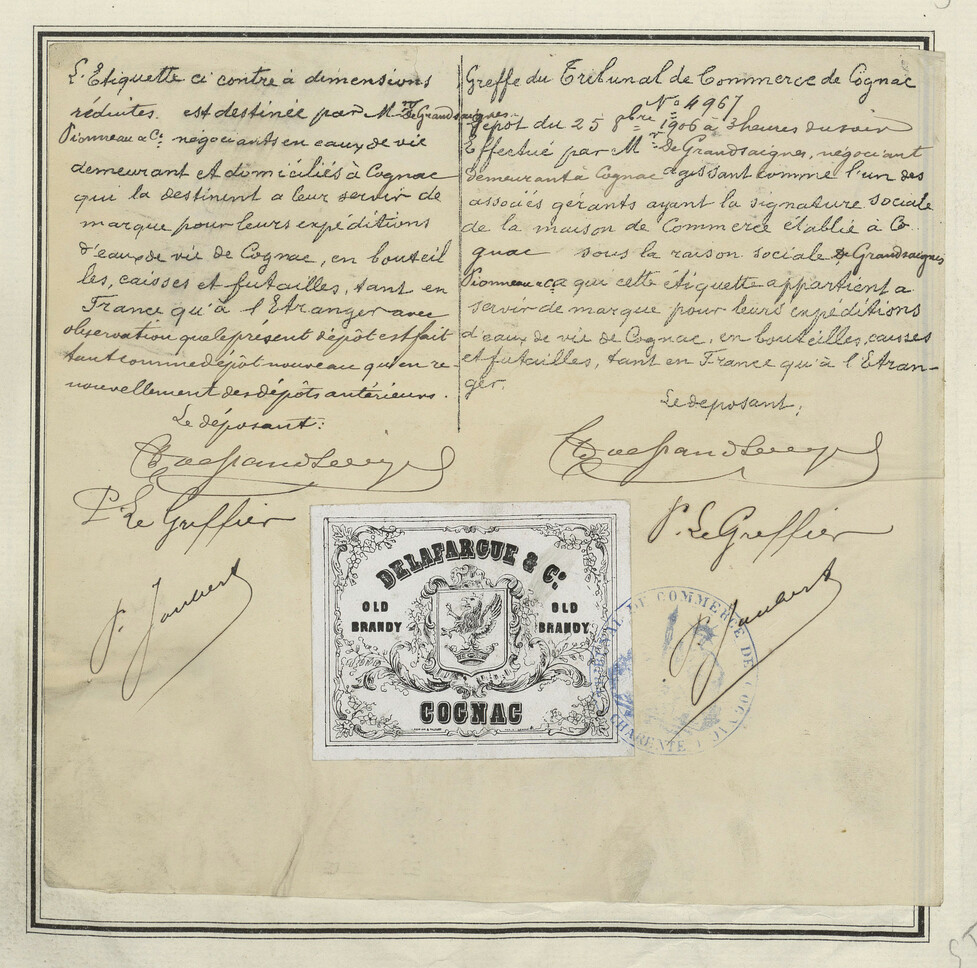 L'Etiquette ci contre à dimensions
réduites. est destinée par M.rs DeGrandsaignes
Pionneau & Cie. négociants en eaux de vie
demeurant et domiciliés à Cognac
qui la destinent a leur servir de
marque pour leurs expéditions
d'eaux de vie de Cognac, en bouteil
les, caisses et futailles, tant en
France qu'à l'Etranger avec
observation que le présent dépôt est fait
tant comme dépôt nouveau qu'en re-
nouvellement des dépôts antérieurs.
Le déposant:
P. Le Greffier
P. Joubert
Greffe du Tribunal de Commerce de Cognac
N° 4967
dépot du 25 8bre 1906 à 3 heures du soir
Effectué par M.r DeGrandsaignes, négociant
demeurant à Cognac agissant comme l'un des
associés gérants ayant la signature sociale
de la maison de Commerce établie à Co
gnac sous la raison sociale DeGrandsaignes
Pionneau & Cie que cette étiquette appartient a
servir de marque pour leurs expéditions
d'eaux de vie de Cognac, en bouteilles, caisses
et futailles, tant en France qu'à l'Etran-
ger.
Le deposant;
P. Le Greffier
P. Joubert
DELAFARGUE & Co.
OLD BRANDY
OLD BRANDY
COGNAC
TRIBUNAL DE COMMERCE DE COGNAC
CHARENTE